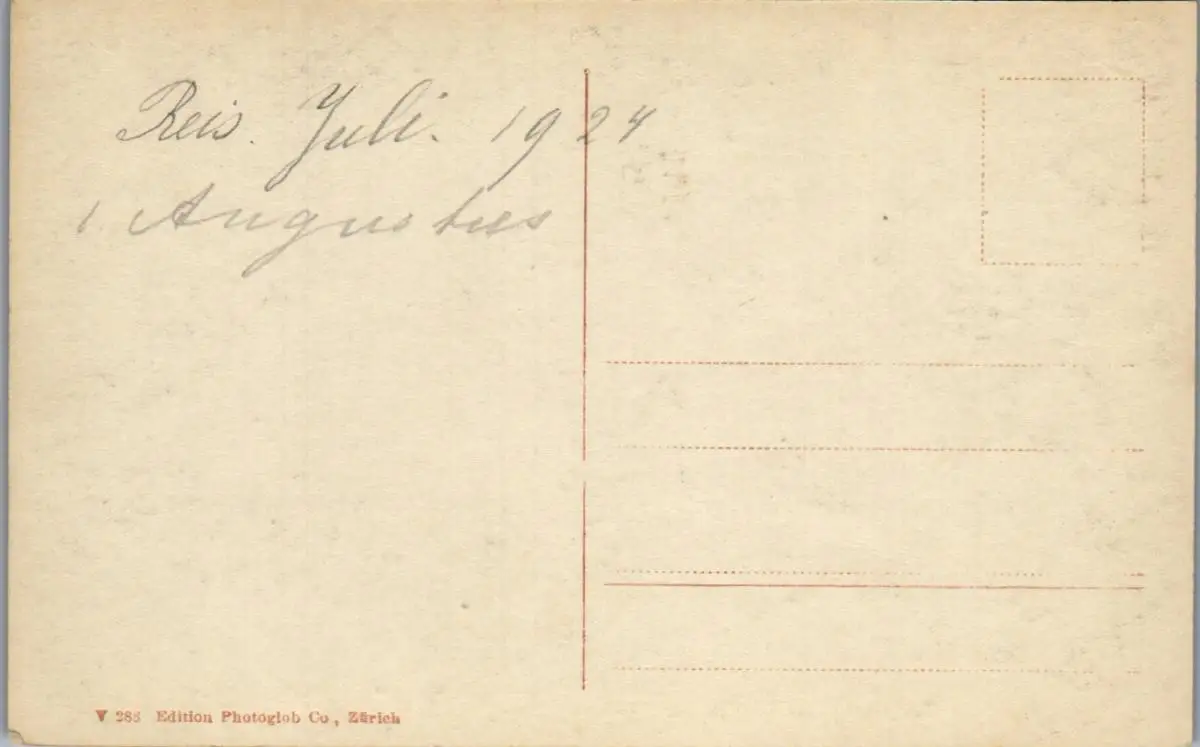 Reis. Juli. 1924
1 Augustus
Edition Photoglob Co., Zürich